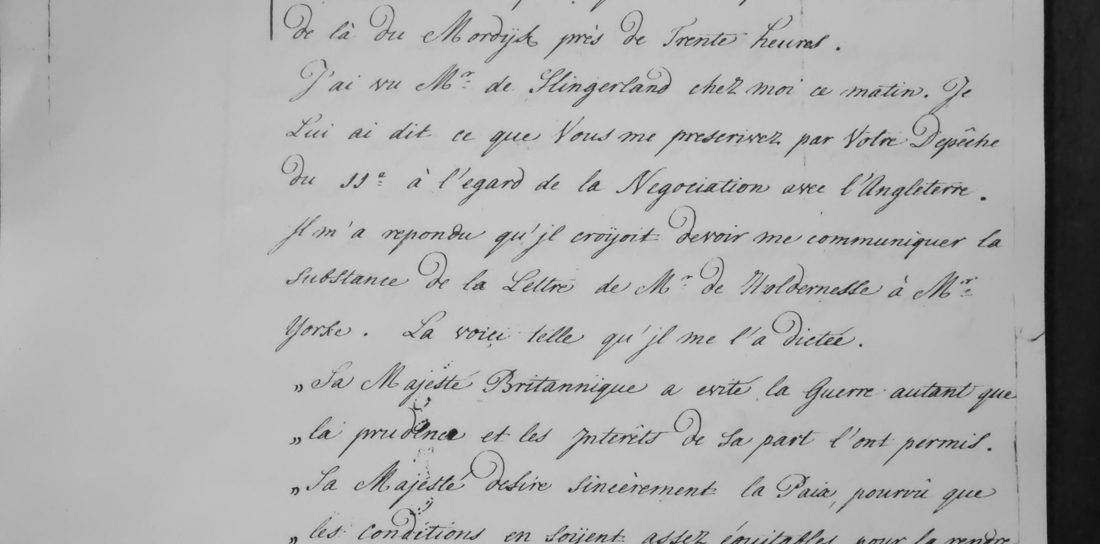 de là du Mordÿk près de Trente heures.
J'ai vu Mr. de Slingerland chez moi ce matin. Je
Lui ai dit ce que Vous me prescrivez par Votre Depêche
du 11e à l'egard de la Negociation avec l'Angleterre.
Il m'a repondu qu'jl croÿoit devoir me communiquer la
substance de la Lettre de Mr. de Holdernesse à Mr.
Yorke. La voici telle qu'jl me l'a dictée.
„Sa Majesté Britannique a evité la Guerre autant que
„la prudence et les Jnterêts de sa part l'ont permis.
„Sa Majesté desire sincèrement la Paix, pourvû que
„les conditions en soÿent assez équitables pour la rendre